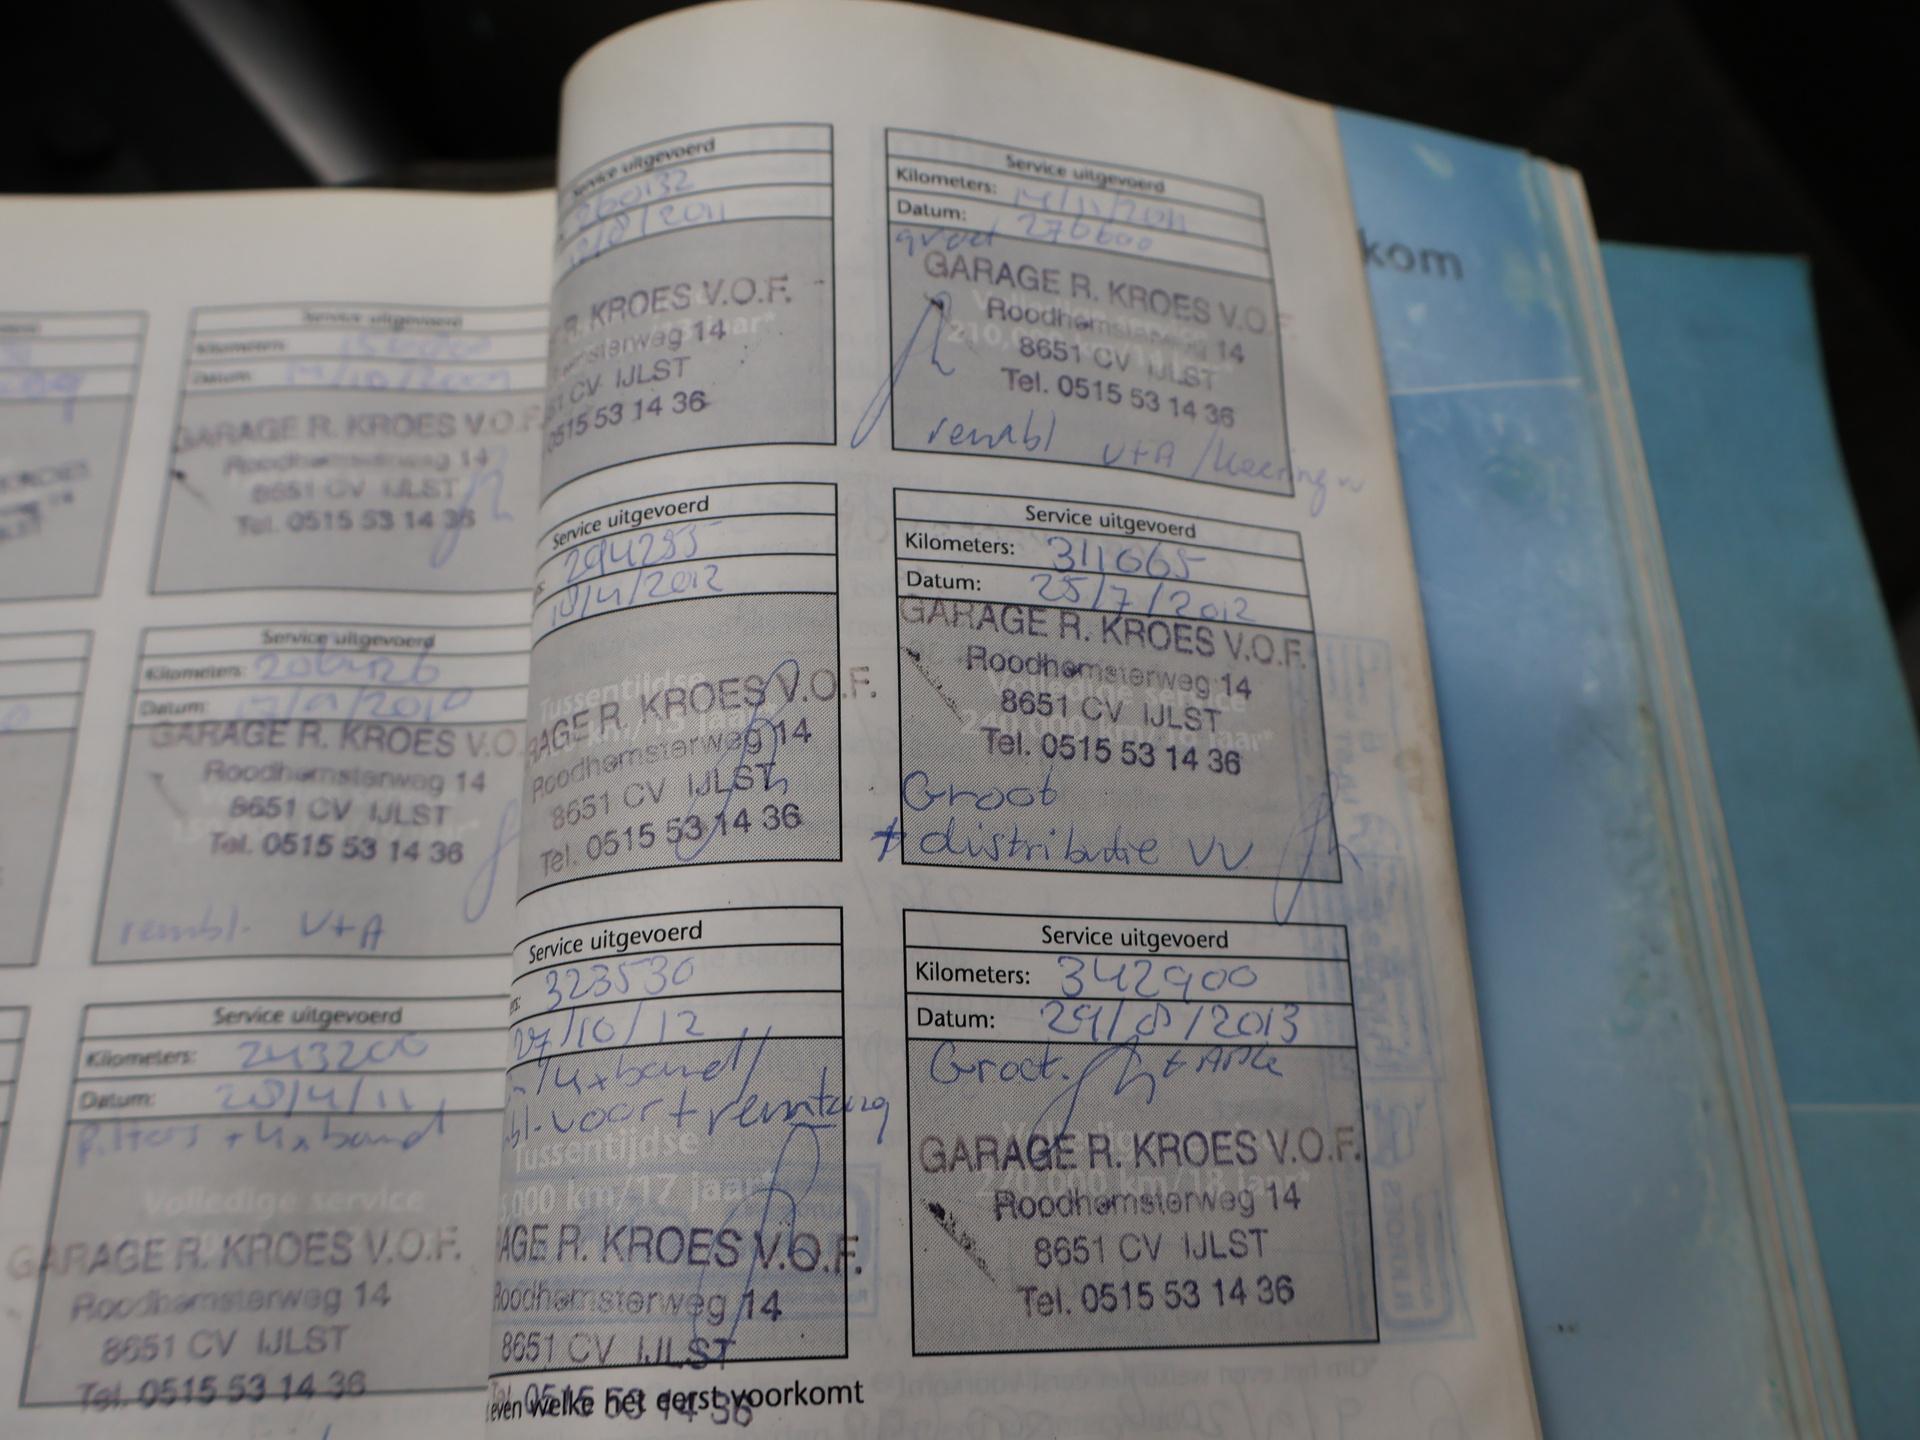 Service uitgevoerd
Kilometers:
Datum: 14/10/2009
GARAGE R. KROES V.O.F.
Roodhemsterweg 14
8651 CV IJLST
Tel. 0515 53 14 36
Service uitgevoerd
Kilometers: 206426
Datum: 17/9/2010
GARAGE R. KROES V.O.
Roodhemsterweg 14
8651 CV IJLST
Tel. 0515 53 14 36
rembl. V+A
Service uitgevoerd
Kilometers: 243200
Datum: 28/4/11
Filters + 4x band
Volledige service
GARAGE R. KROES V.O.F.
Roodhemsterweg 14
8651 CV IJLST
Tel. 0515 53 14 36
Service uitgevoerd
260132
/8/2011
R. KROES V.O.F.
msterweg 14
51 CV IJLST
0515 53 14 36
Service uitgevoerd
Kilometers: 14/11/2011
Datum: 276600
groot
GARAGE R. KROES V.O.F.
Roodhemsterweg 14
8651 CV IJLST
Tel. 0515 53 14 36
rembl V+A / keering vv
Service uitgevoerd
294255
18/4/2012
Tussentijdse
RAGE R. KROES V.O.F.
Roodhemsterweg 14
8651 CV IJLST
Tel. 0515 53 14 36
Service uitgevoerd
Kilometers: 311665
Datum: 25/7/2012
GARAGE R. KROES V.O.F.
Roodhemsterweg 14
Volledige service
8651 CV IJLST
240.000 km/16 jaar*
Tel. 0515 53 14 36
Groot
+ distributie VV
Service uitgevoerd
323530
27/10/12
/4x band/
bl. voor + remtang
Tussentijdse
5.000 km/17 jaar*
AGE R. KROES V.O.F.
Roodhemsterweg 14
8651 CV IJLST
Tel. 0515 53 14 36
even welke het eerst voorkomt
Service uitgevoerd
Kilometers: 342900
Datum: 29/8/2013
Groot. + APK
GARAGE R. KROES V.O.F.
270.000 km/18 jaar*
Roodhemsterweg 14
8651 CV IJLST
Tel. 0515 53 14 36
kom